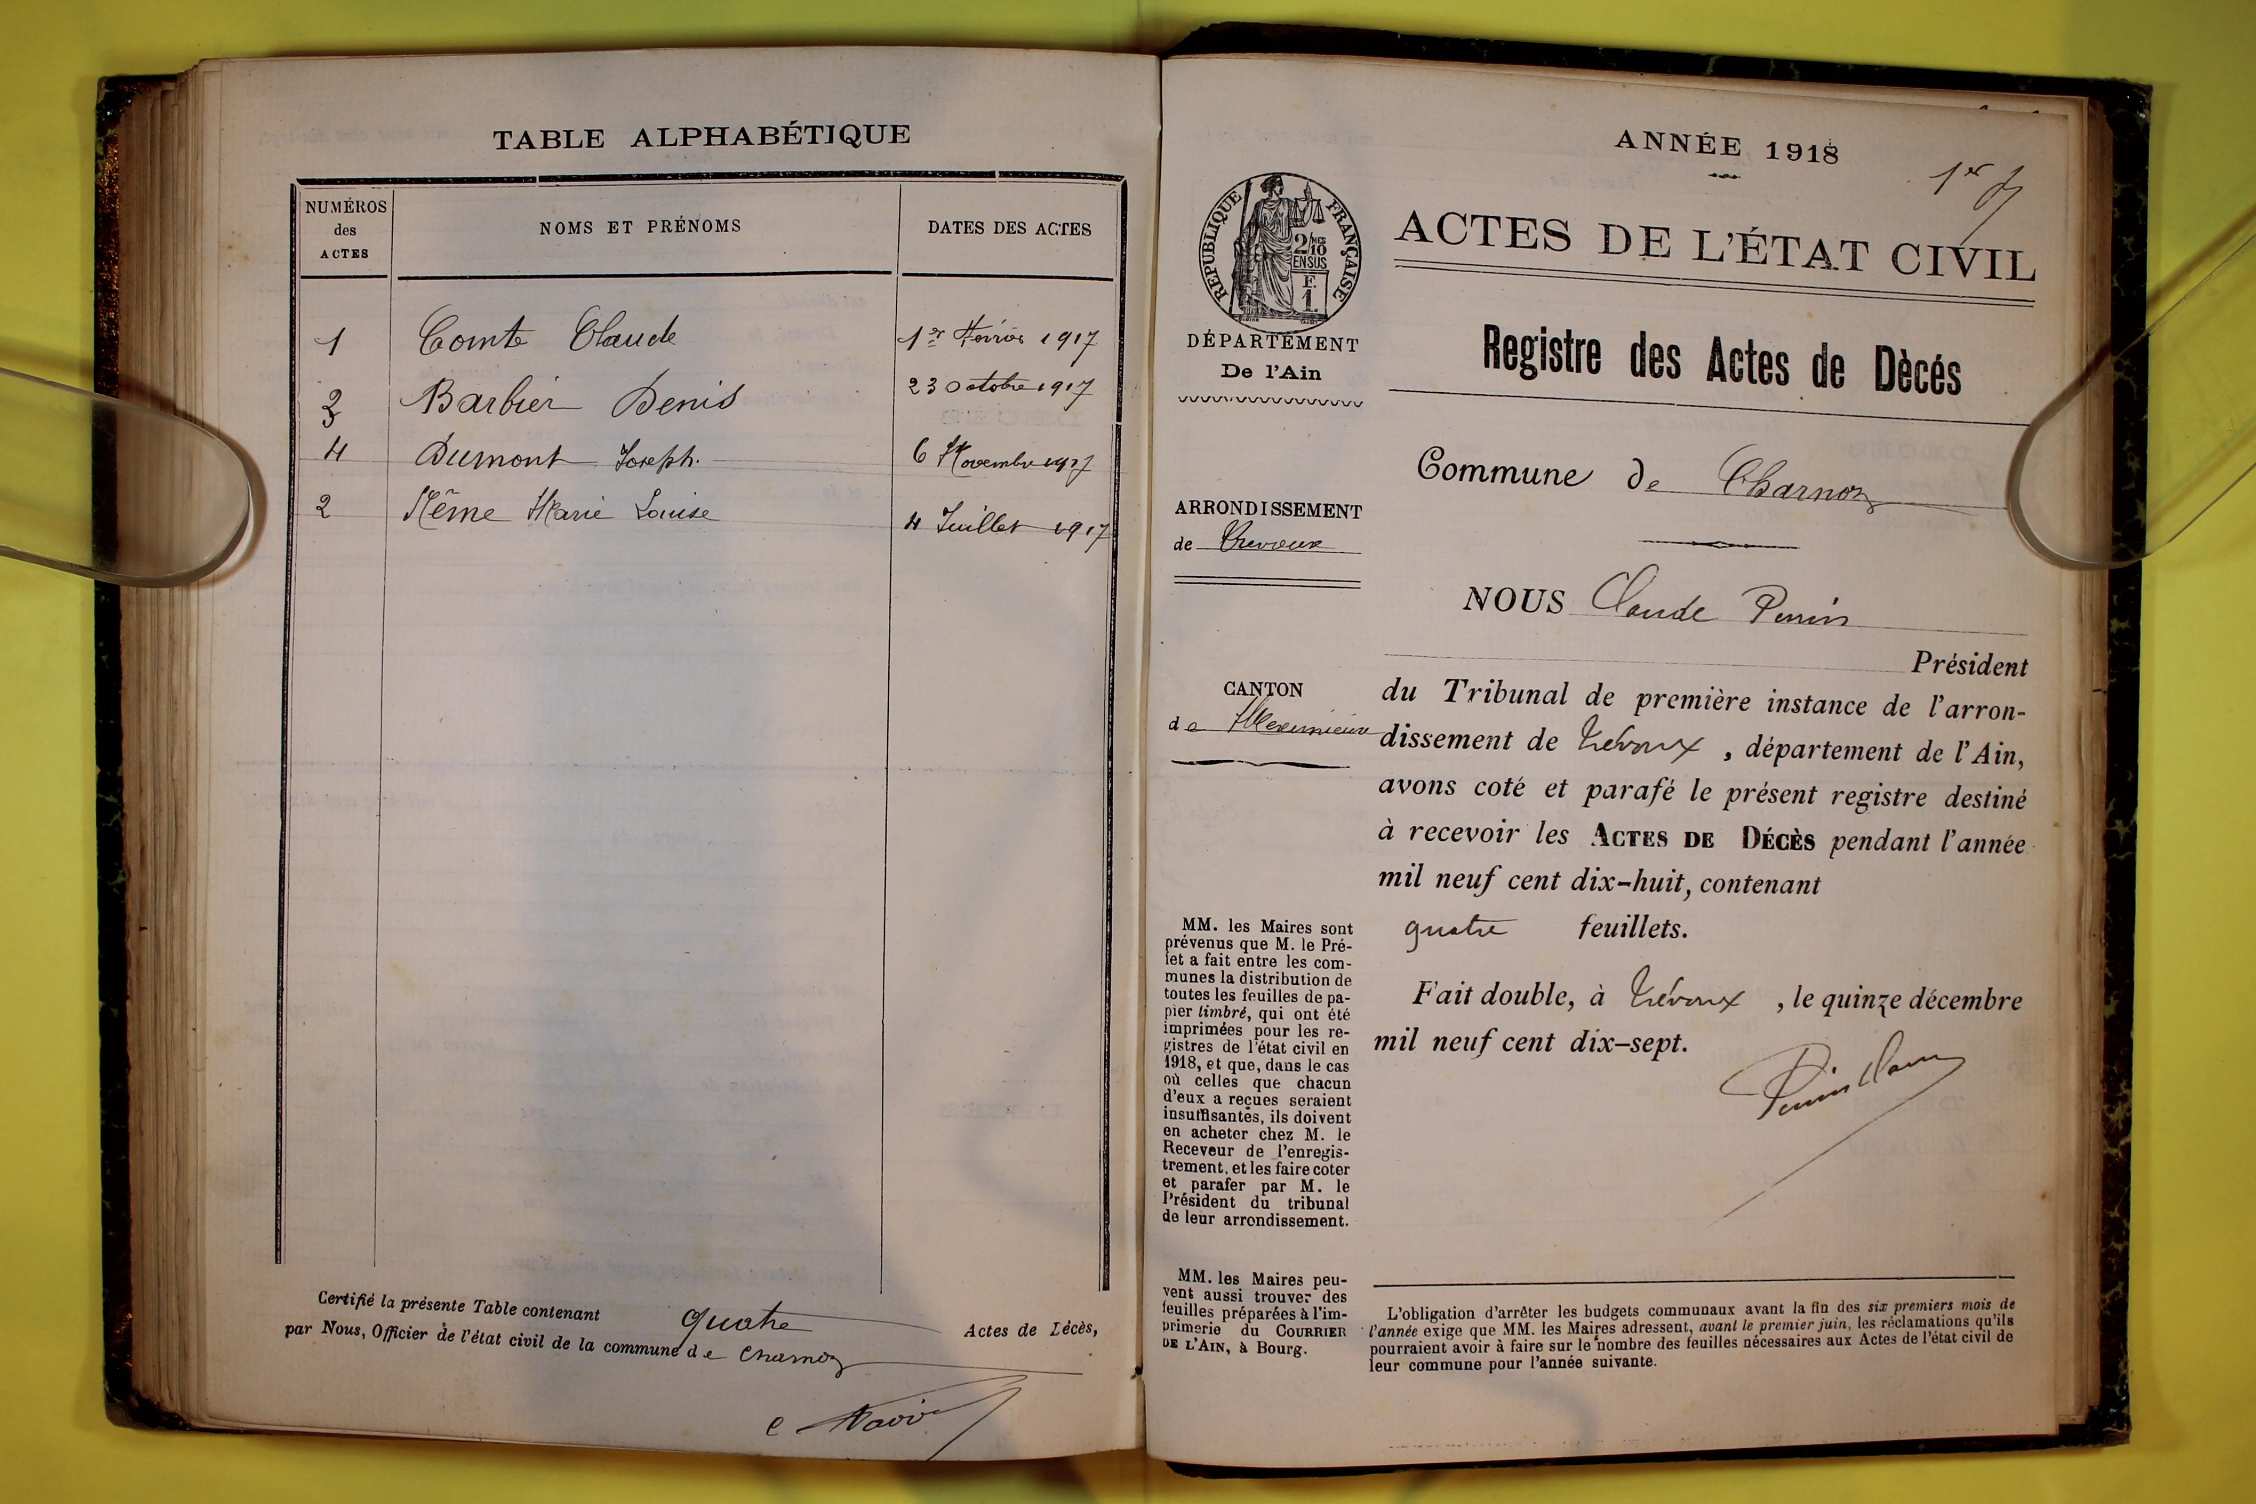 TABLE ALPHABÉTIQUE
NUMÉROS
des
ACTES
NOMS ET PRÉNOMS
DATES DES ACTES
1 Comte Claude 1er Février 1917
3 Barbier Denis 23 Octobre 1917
4 Dumont Joseph. 6 Novembre 1917
2 Même Marie Louise 4 Juillet 1917
Certifié la présente Table contenant quatre Actes de Décès,
par Nous, Officier de l'état civil de la commune de Charnoz
ANNÉE 1918
1er
RÉPUBLIQUE FRANÇAISE
2/10
EN SUS
F.
1
ACTES DE L'ÉTAT CIVIL
DÉPARTEMENT
De l'Ain
Registre des Actes de Dècés
Commune de Charnoz
ARRONDISSEMENT
de Trevoux
NOUS Claude Perrin
Président
CANTON
de Meximieux
du Tribunal de première instance de l'arron-
dissement de Trévoux, département de l'Ain,
avons coté et parafé le présent registre destiné
à recevoir les ACTES DE DÉCÈS pendant l'année
mil neuf cent dix-huit, contenant
quatre feuillets.
Fait double, à Trévoux, le quinze décembre
mil neuf cent dix-sept.
MM. les Maires sont
prévenus que M. le Pré-
fet a fait entre les com-
munes la distribution de
toutes les feuilles de pa-
pier timbré, qui ont été
imprimées pour les re-
gistres de l'état civil en
1918, et que, dans le cas
où celles que chacun
d'eux a reçues seraient
insuffisantes, ils doivent
en acheter chez M. le
Receveur de l'enregis-
trement, et les faire coter
et parafer par M. le
Président du tribunal
de leur arrondissement.
MM. les Maires peu-
vent aussi trouver des
feuilles préparées à l'im-
primerie du COURRIER
DE L'AIN, à Bourg.
L'obligation d'arrêter les budgets communaux avant la fin des six premiers mois de
l'année exige que MM. les Maires adressent, avant le premier juin, les réclamations qu'ils
pourraient avoir à faire sur le nombre des feuilles nécessaires aux Actes de l'état civil de
leur commune pour l'année suivante.